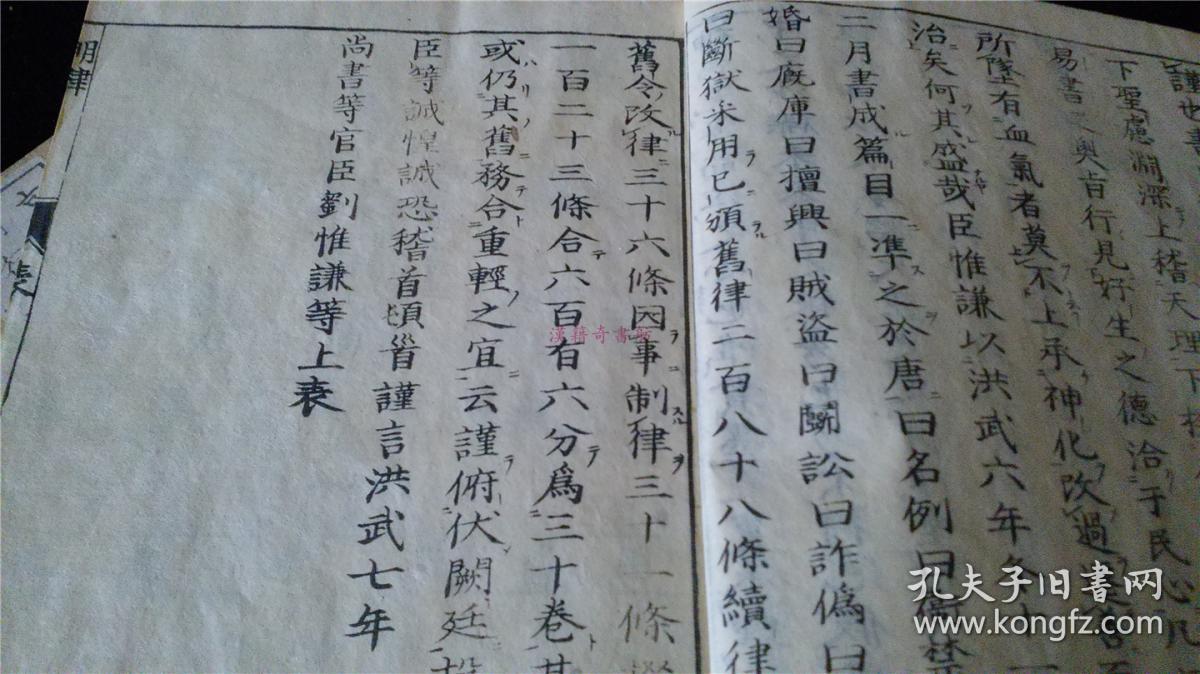 謹世
下聖慮淵深上稽天理下
易書之奥旨行見好生之德洽于民心凡
所墜有血氣者莫不上承神化改過
治矣何其盛哉臣惟謙以洪武六年冬十一
二月書成篇目一準之於唐曰名例曰衞禁
婚曰廐庫曰擅興曰賊盗曰鬭訟曰詐僞曰
曰斷獄采用已頒舊律二百八十八條續律
舊令改律三十六條因事制律三十一條
一百二十三條合六百有六分爲三十卷其
或仍其舊務合重輕之宜云謹俯伏闕廷
臣等誠惶誠恐稽首頓首謹言洪武七年
尚書等官臣劉惟謙等上表
明律
表
漢籍奇書
孔夫子旧书网
www.kongfz.com